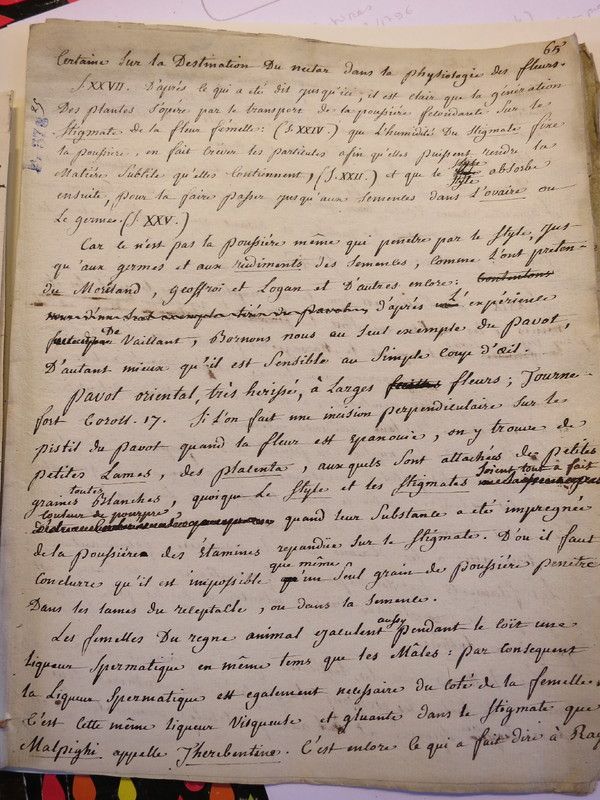 65
Certaine Sur la Destination Du nectar dans la physiologie des fleurs.
§. XXVII. D'après ce qui a été dit jusqu'ici, il est clair que la génération
Des plantes s'opère par le transport de la poussière fécondante Sur le
Stigmate de la fleur femelle: (§. XXIV) que L'humidité Du Stigmate fixe
la poussière, en fait crever les particules afin qu'elles puissent rendre la
Matière Subtile qu'elles Contiennent, (§. XXII) et que le style absorbe
ensuite, pour la faire passer jusqu'aux Semences dans L'ovaire ou
Le germe. (§. XXV)
Car ce n'est pas la poussière même qui penetre par le Style, jus-
qu'aux germes et aux rudiments des Semences, comme L'ont préten-
du Morland, Geoffroi et Logan et D'autres encore: Contentons
d'après L'experience
De Vaillant, Bornons nous au seul exemple du pavot,
D'autant mieux qu'il est Sensible au Simple Coup d'œil.
pavot oriental, très herissé, à Larges fleurs; Tourne-
fort Coroll. 17. Si L'on fait une incision perpendiculaire Sur le
pistil du pavot quand la fleur est épanouie, on y trouve de
petites Lames, des placenta, auxquels Sont attachées de petites
graines toutes Blanches, quoique Le Style et les Stigmates Soient tout à fait
Couleur de pourpre quand leur Substance a été impregnée
de la poussière des Étamines repandüe sur le Stigmate. D'où il faut
Conclurre qu'il est impossible que même un Seul grain de poussière penètre
Dans les lames du receptacle, ou dans la Semence.
Les femelles Du regne animal ejaculent aussy pendant le Coït une
Liqueur Spermatique en même tems que les Mâles: par Consequent
la Liqueur Spermatique est egalement necessaire du Coté de la femelle.
C'est cette même Liqueur Visqueuse et gluante dans le Stigmate que
Malpighi appelle Therebentine. C'est encore ce qui a fait dire à Ray